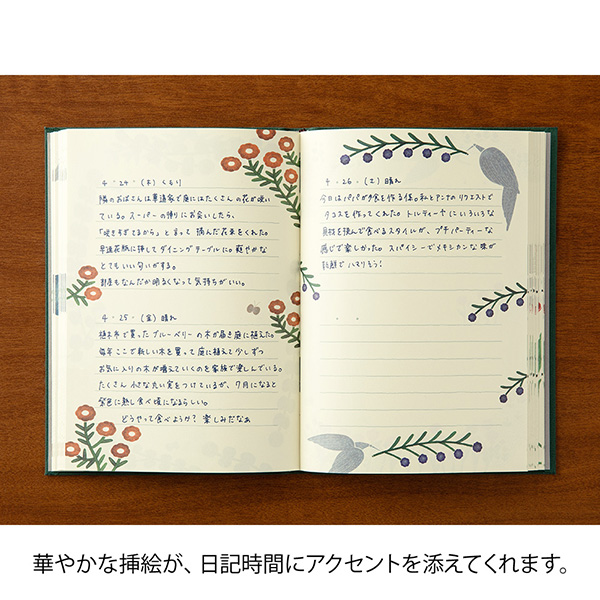 4・24・(木) くもり
隣のおばさんは華道家で庭にはたくさんの花が咲い
ている。スーパーの帰りにお会いしたら、
「咲きすぎてるから」と言って 摘んだ花束をくれた。
早速花瓶に挿してダイニングテーブルに。爽やかな
とてもいい匂いがする。
財産もなんだか明るくなって気持ちがいい。
4・25・(金) 晴れ
植木市で買ったブルーベリーの木が届き庭に植えた。
毎年ここで新しい木を買って庭に植えて少しずつ
お気に入りの木が増えていくのを家族で楽しんでいる。
たくさん小さな丸い実をつけているが、7月になると
紫色に熟し食べ頃になるらしい。
どうやって食べようか？ 楽しみだなぁ
4・26・(土) 晴れ
今日はパパが夕食を作る係。私とアンナのリクエストで
タコスを作ってくれた。トルティーヤにいろいろな
具材を挟んで食べるスタイルが、プチパーティーな
感じで楽しかった。スパイシーでメキシカンな味が
新鮮でハマりそう！
華やかな挿絵が、日記時間にアクセントを添えてくれます。